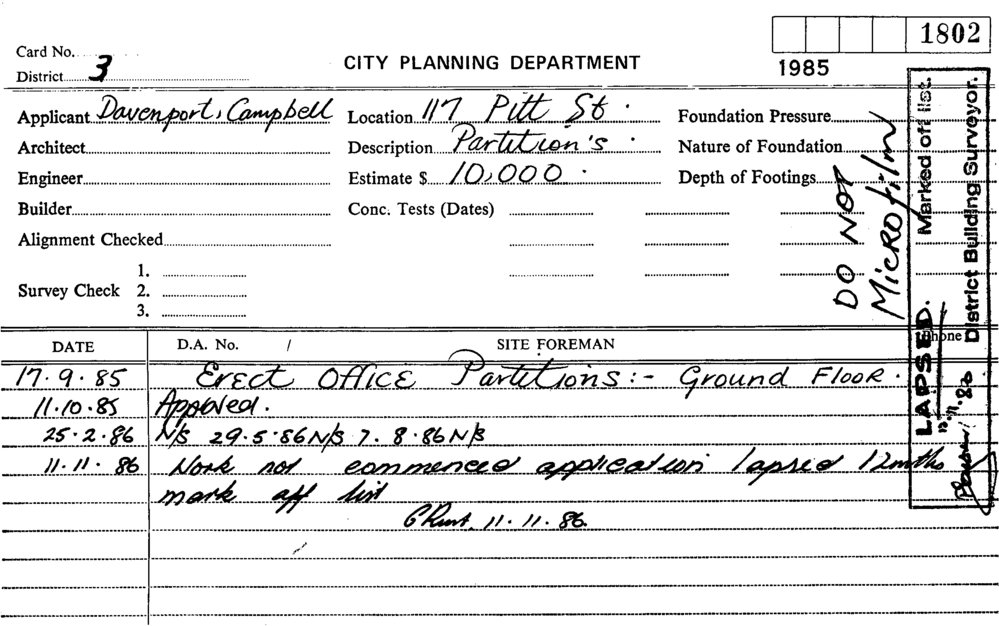 1802
Card No.
District 3
CITY PLANNING DEPARTMENT
1985
Applicant Davenport, Campbell
Location 117 Pitt St.
Foundation Pressure
Architect
Description Partition's.
Nature of Foundation
Engineer
Estimate $ 10,000.
Depth of Footings
Builder
Conc. Tests (Dates)
Alignment Checked
1.
Survey Check 2.
3.
DO NOT
Microfilm
LAPSED. Marked off list.
District Building Surveyor.
DATE D.A. No. / SITE FOREMAN Phone
17.9.85 Erect Office Partitions:- Ground Floor.
11.10.85 Approved.
25.2.86 N/S 29.5.86 N/S 7.8.86 N/S
11.11.86 Work not commenced application lapsed 12mths
mark off list
11.11.86